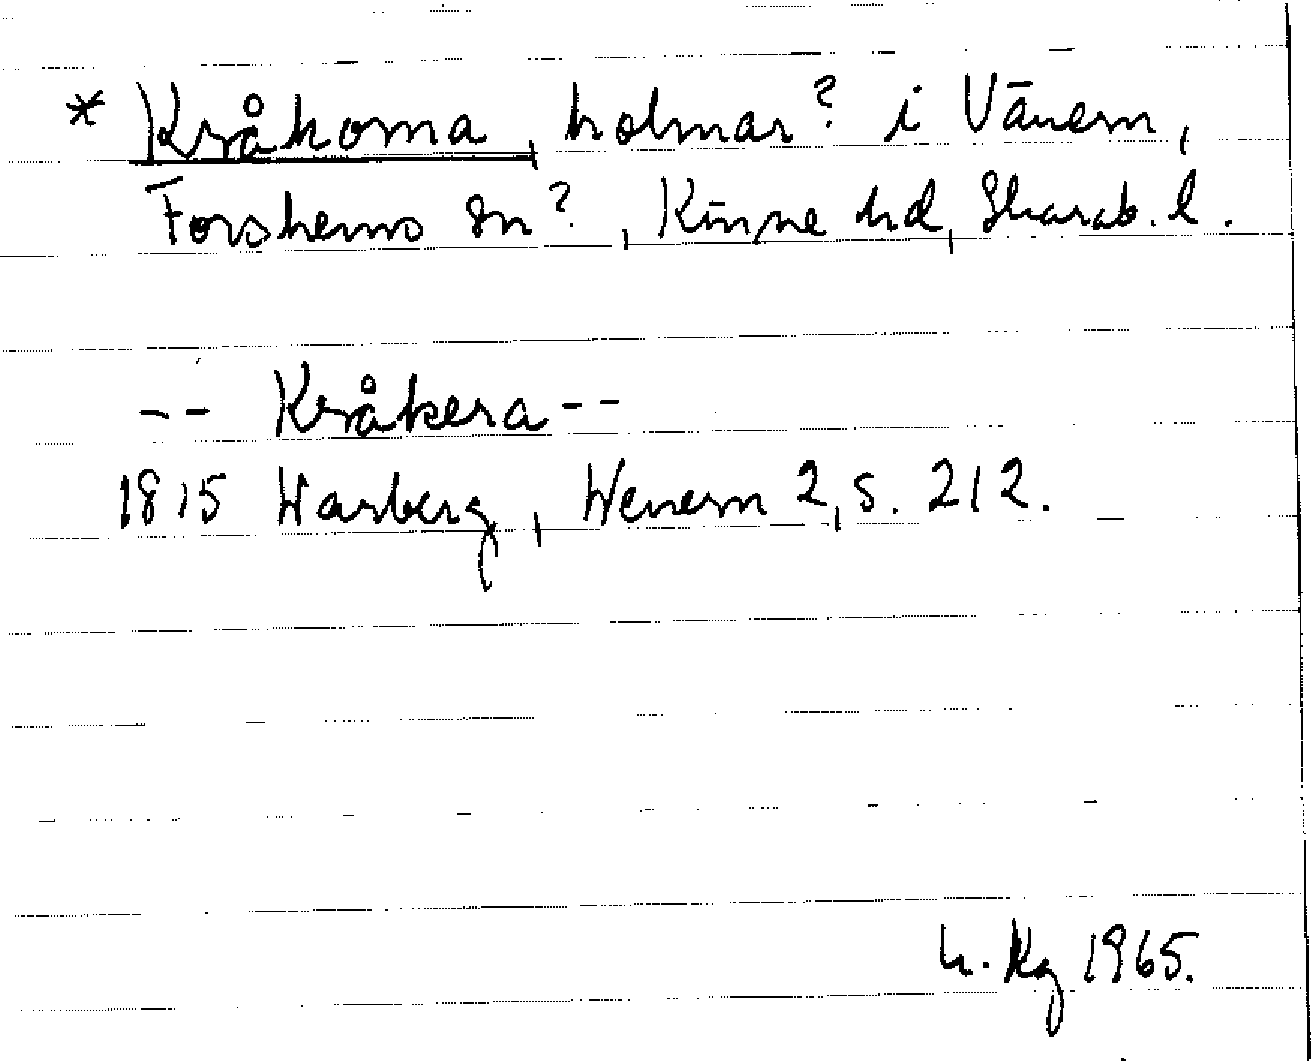 * Kråkorna, holmar? i Vänern,
Forshems sn?, Kinne hd, Skarab. l.
-- Kråkera --
1815 Warberg, Wenern 2, s. 212.
h. Kg 1965.